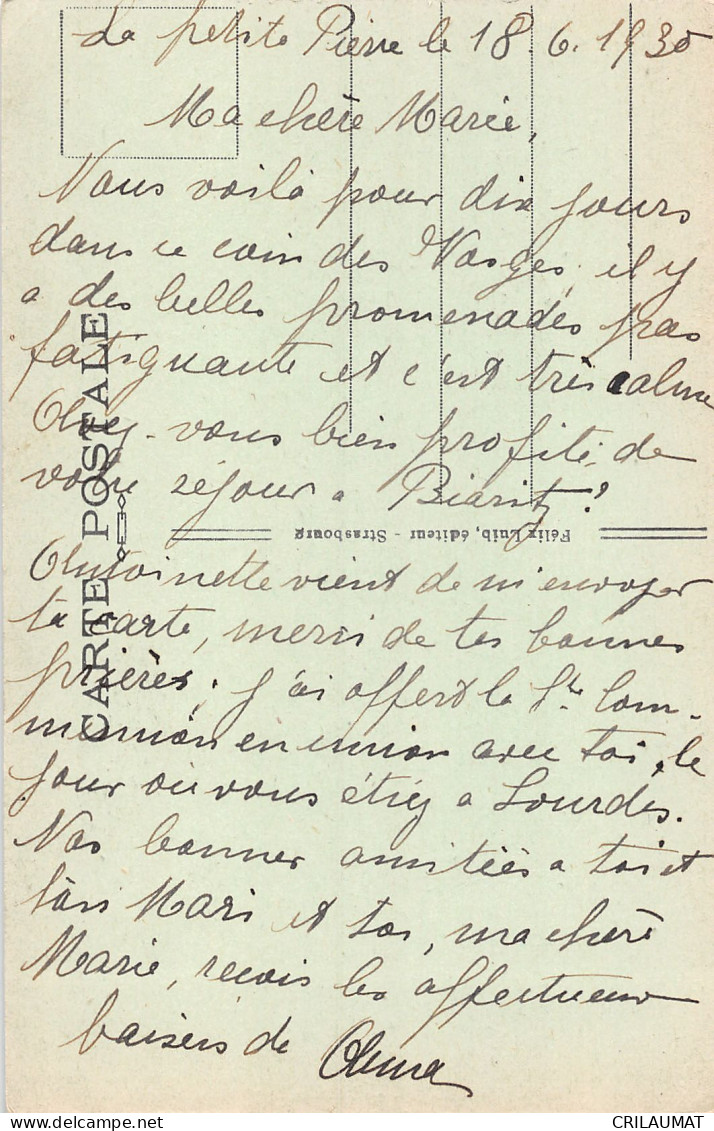 La petite Pierre le 18.6.1930
Ma chère Marie,
Nous voilà pour dix jours
dans ce coin des Vosges, il y
a des belles promenades pas
fatiguante et c'est très calme
Avez-vous bien profité de
votre séjour a Biaritz?
Antoinette vient de m'envoyer
ta carte, merci de tes bonnes
prières; j'ai offert la Ste Com-
munion en union avec toi, le
jour où vous étiez a Lourdes.
Nos bonnes amitiés a toi et
ton Mari et toi, ma chère
Marie, reçois les affectueux
baisers de Anna
CARTE POSTALE
Félix Luib, éditeur - Strasbourg
CRILAUMAT